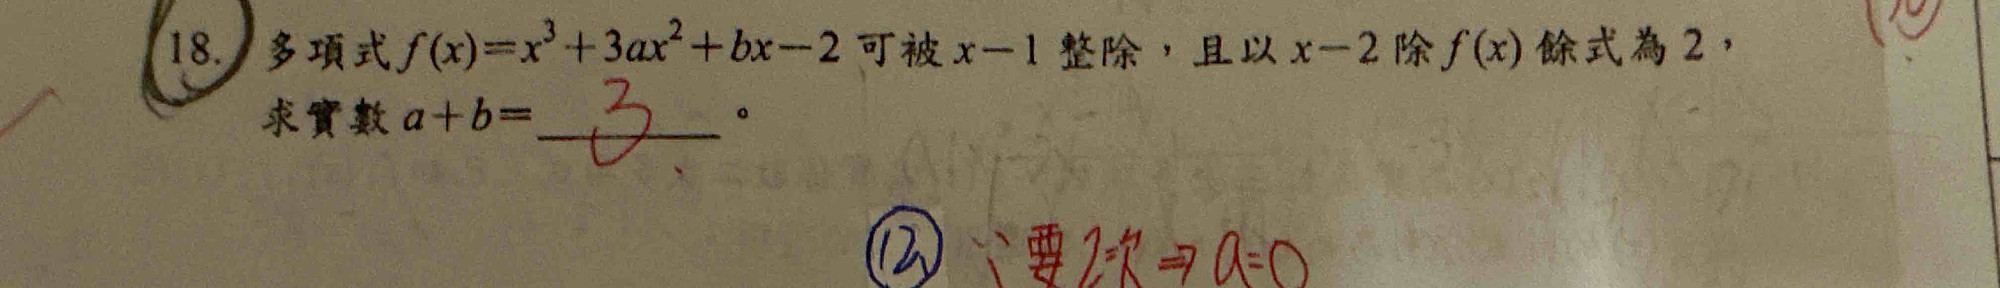 18. 多項式 f(x)=x³+3ax²+bx-2 可被 x-1 整除，且以 x-2 除 f(x) 餘式為 2，
求實數 a+b= 3 。
⑫ ∵要2次⇒a=0